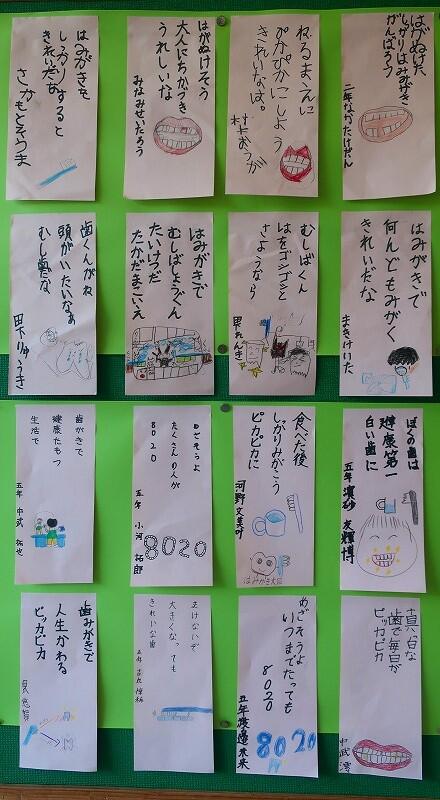 はがぬけた
しっかりはみがき
がんばろう
二年
ねるまえに
ぴかぴかにしよう
きれいなは。
はがぬけそう
大人にちかづき
うれしいな
みなみせいたろう
はみがきを
しっかりすると
きれいだな
さかもとそうま
はみがきで
何んどもみがく
きれいだな
まきけいた
むしばくん
はをゴシゴシと
さようなら
はみがきで
むしばしょうぐん
たいけつだ
歯くんがね
頭がいたいなぁ
むし歯だな
田下りゅうき
ぼくの歯は
健康第一
白い歯に
五年
食べた後
しっかりみがこう
ピカピカに
はみがき大臣
めざそうよ
たくさんの人が
8020
五年 小河 拓郎
8020
歯がきで
健康たもつ
生活で
五年 中武 拓也
真っ白な
歯で毎日が
ピッカピカ
中武 澪
めざそうよ
いつまでたっても
8020
五年渡邉未来
8020
まけないぞ
大きくなっても
きれいな歯
五年
歯みがきで
人生かわる
ピッカピカ